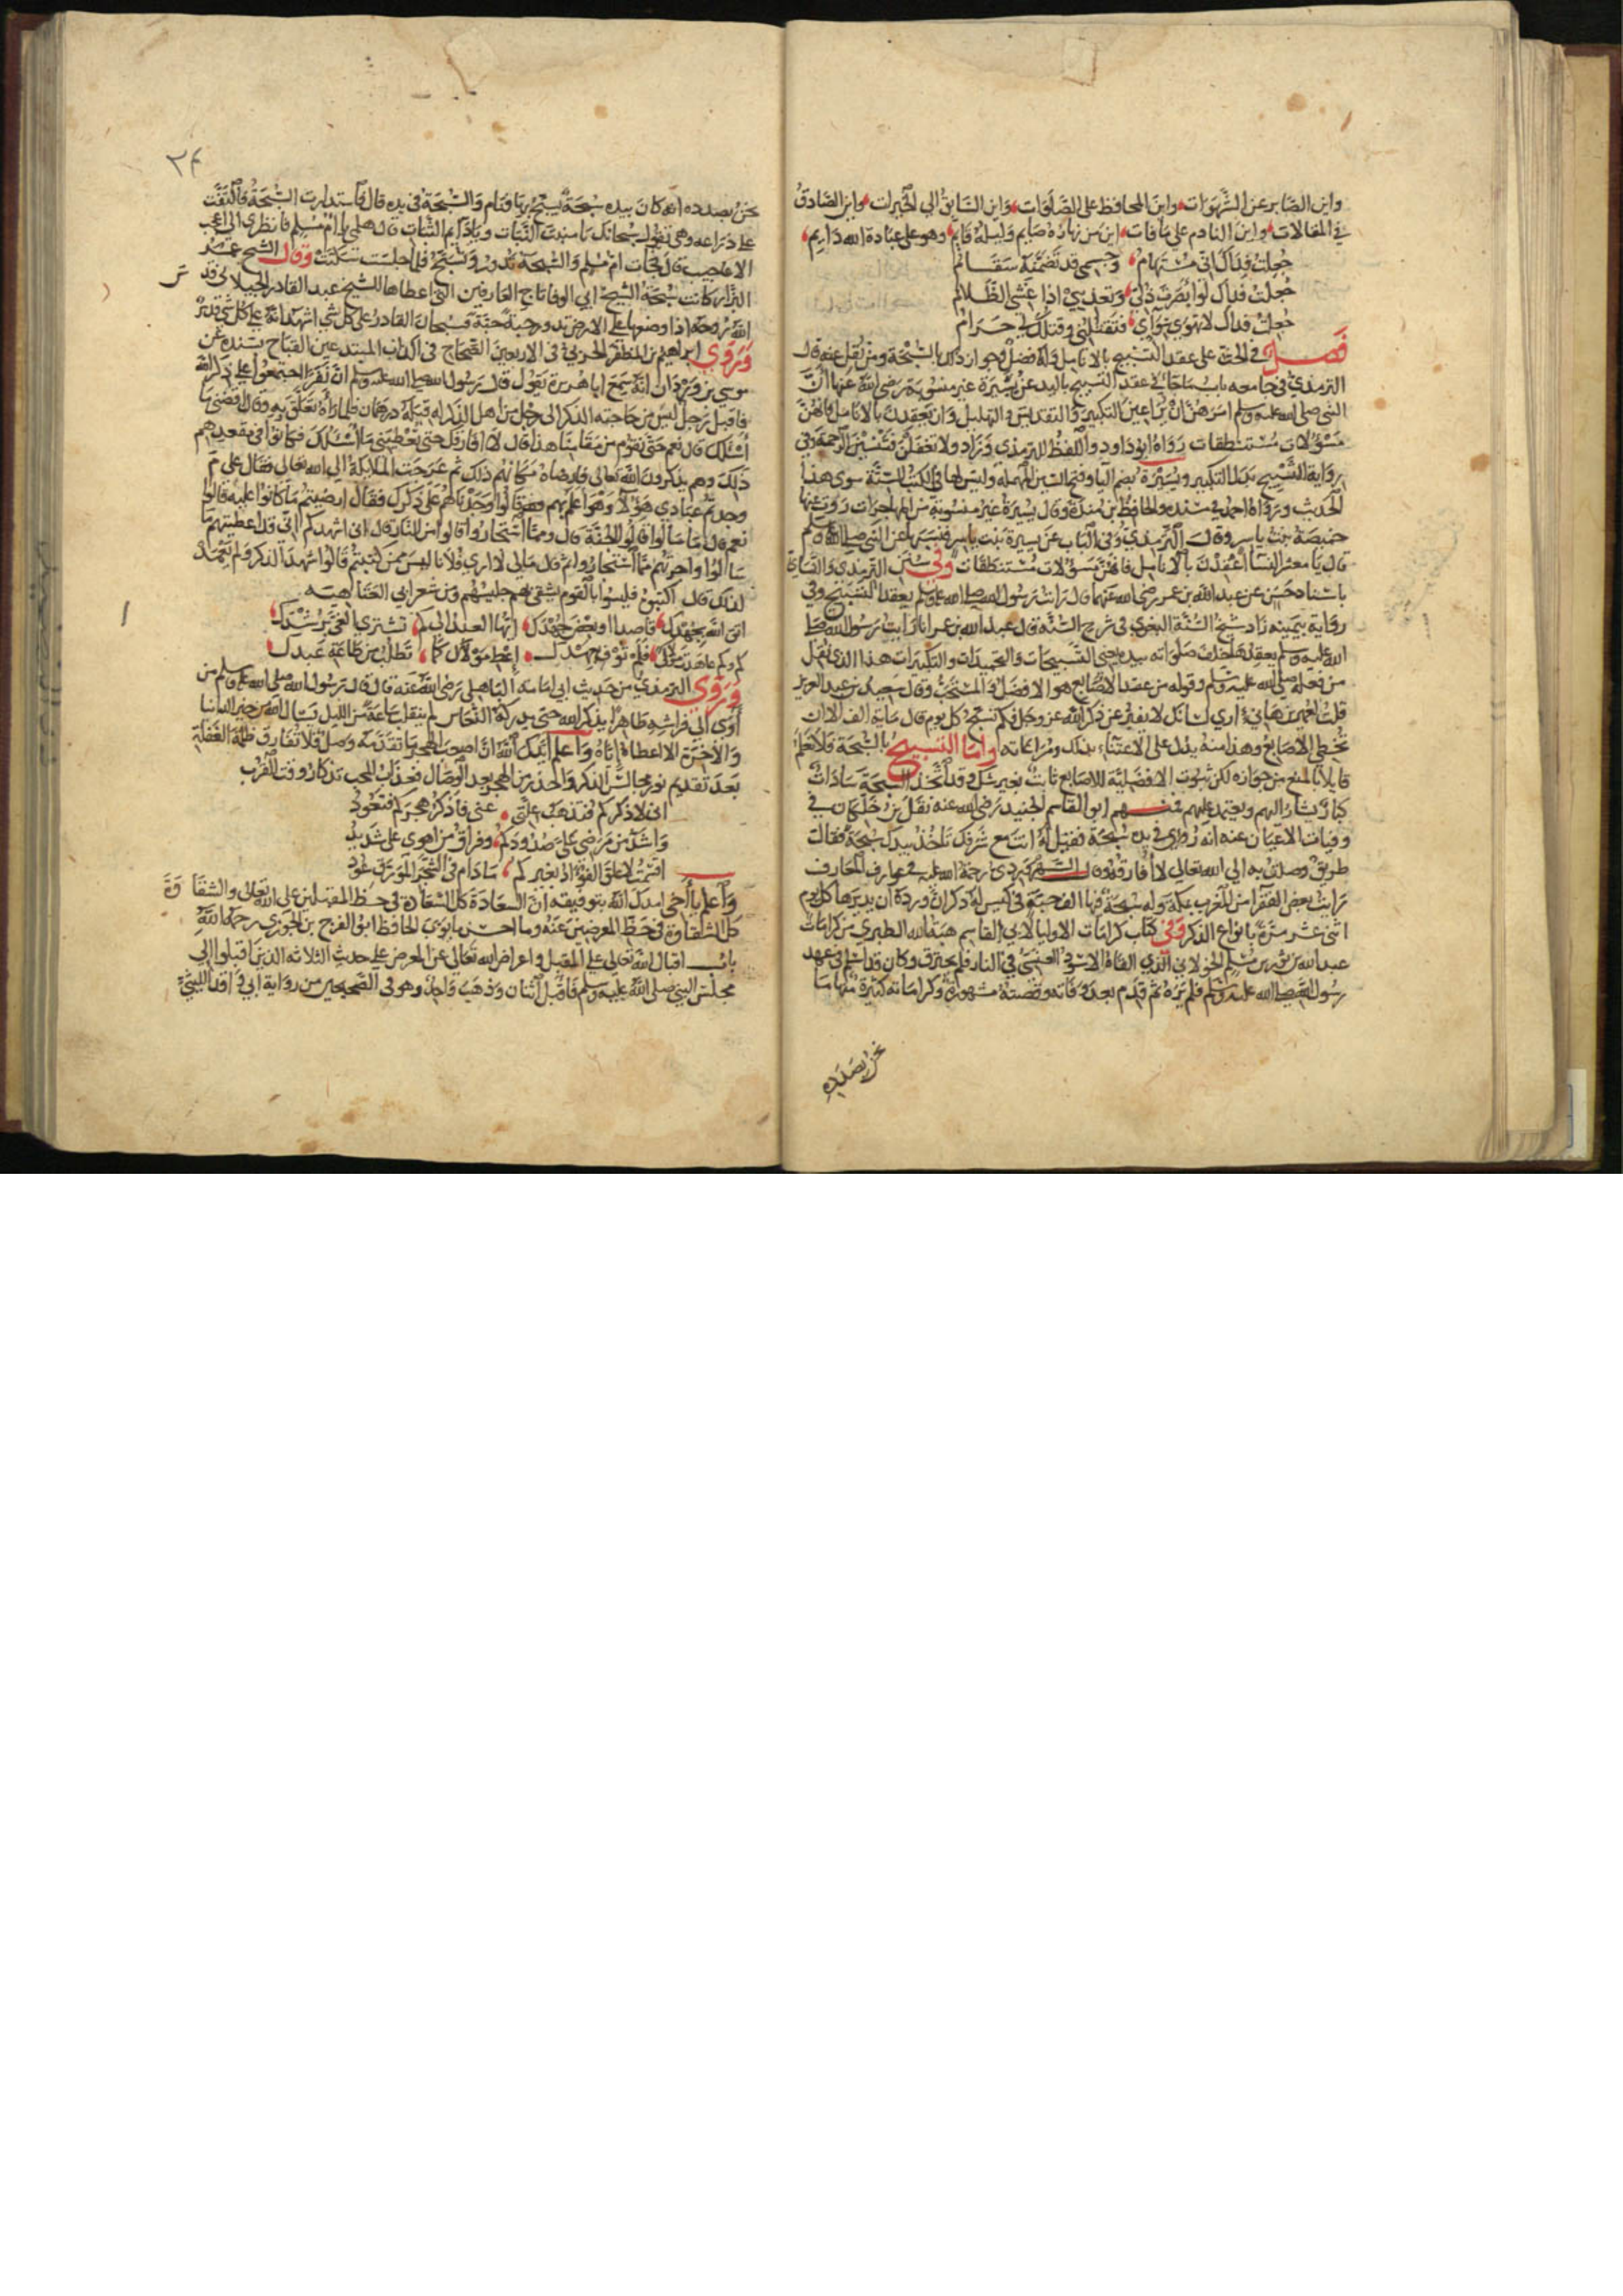 واين الصابر عن الشهوات واين المحافظ على الصلوات واين السابق الى الخيرات واين الصادق
في المقالات واين النادم على ما فات اين من نهاره صايم وليله قايم وهو على عبادة الله دايم
جعلت فداك اني مستهام وجسمي قد تضمنه سقام
جعلت فداك لو ابصرت ذلي وتعذيبي اذا غشي الظلام
جعلت فداك لا تهوى سواي فتقتلني وقتلك لي حرام
فصل في الحث على عقد التسبيح بالانامل وانه افضل وجواز ذلك بالسبحة ومن نقل عنه قال
الترمذي في جامعه باب ما جا في عقد التسبيح باليد عن يسيرة غير منسوبة رضي الله عنها ان
النبي صلى الله عليه وسلم امرهن ان يراعين التكبير والتقديس والتهليل وان يعقدن بالانامل فانهن
مسؤلات مستنطقات رواه ابو داود واللفظ للترمذي وزاد ولا تغفلن فتنسين الرحمة وفي
رواية التسبيح بدل التكبير ويسيرة بضم اليا وفتح السين المهملة وليس لها في الكتب الستة سوى هذا
الحديث ورواه احمد في مسنده والحافظ بن مندة وقال يسيرة غير منسوبة من المهاجرات روت عنها
حميضة بنت ياسر وقال الترمذي وفي الباب عن يسيرة بنت ياسر فنسبها عن النبي صلى الله عليه وسلم
قال يا معشر النسا اعقدن بالانامل فانهن مسؤلات مستنطقات وفي سنن الترمذي والنساي
باسناد حسن عن عبد الله بن عمر رضي الله عنهما قال رايت رسول الله صلى الله عليه وسلم يعقد التسبيح وفي
رواية بيمينه زاد شيخ السنة البغوي في شرح السنة قال عبد الله بن عمر انا رايت رسول الله صلى
الله عليه وسلم يعقدها خلف صلواته بيده يعني التسبيحات والتحميدات والتكبيرات هذا الذي نقل
من فعله صلى الله عليه وسلم وقوله من عقد الاصابع هو الافضل والمستحب وقال سعيد بن عبد العزيز
قلت لعمير بن هاني ارى لسانك لا يفتر عن ذكر الله عز وجل فكم تسبح كل يوم قال ماية الف الا ان
تخطي الاصابع وهذا منه يدل على الاعتناء بذلك ومراعاته واما التسبيح بالسبحة فلا نعلم
قايلا بالمنع من جوازه لكن ثبوت الافضلية للاصابع ثابت بغير شك وقد اتخذ السبحة سادات
كبار يشار اليهم ويعتمد عليهم فمنهم ابو القاسم الجنيد رضي الله عنه نقل بن خلكان في
وفيات الاعيان عنه انه رؤي في يده سبحة فقيل له انت مع شرفك تاخذ بيدك سبحة فقال
طريق وصلت به الى الله تعالى لا افارقه وقال السهروردي رحمة الله عليه في عوارف المعارف
رايت بعض الفقرا من المغرب بمكة وله سبحة فيها الف حبة في كيس له ذكر ان ورده ان يديرها كل يوم
اثني عشر مرة بانواع الذكر وفي كتاب كرامات الاوليا لابي القاسم هبة الله الطبري من كرامات
عبد الله بن ثوب بن مسلم الخولاني الذي القاه الاسود العنسي في النار فلم يحترق وكان قد اسلم في عهد
رسول الله صلى الله عليه وسلم فلم يره ثم قدم بعد وفاته وقصته مشهورة وكراماته كثيرة منها ما
نحن بصدده
٢٤
نحن بصدده انه كان بيده سبحة يسبح بها فنام والسبحة في يده قال فاستدارت السبحة فالتفت
على ذراعه وهي تقول سبحانك يا منبت النبات ويا دايم الثبات قال هلمي يا ام مسلم فانظري الى اعجب
الاعاجيب قال فجات ام مسلم والسبحة تدور وتسبح فلما جلست سكتت وقال الشيخ عمر
البزار كانت سبحة الشيخ ابي الوفا تاج العارفين التي اعطاها للشيخ عبد القادر الجيلاني قد
الله روحه اذا وضعها على الارض تدور حبة حبة فسبحان القادر على كل شي اشهد انه على كل شي قدير
وروى ابراهيم بن المظفر الحربي في الاربعين الصحاح في اكذاب المبتدعين القباح بسنده عن
موسى بن وردان انه سمع ابا هريرة يقول قال رسول الله صلى الله عليه وسلم ان نفرا اجتمعوا على ذكر الله
فاقبل رجل ليس من حاجته الذكر الى رجل من اهل الذكر له قبله درهمان فلما راه تعلق به وقال اقضني ما
اسئلك قال نعم حتى نقوم من مقامنا هذا قال لا افارقك حتى تعطيني ما اسئلك فكانوا في مقعدهم
ذلك وهم يذكرون الله تعالى فارضاه مكانهم ذلك ثم عرجت الملايكة الى الله تعالى فقال على م
وجدتم عبادي هؤلا وهو اعلم بهم فقالوا وجدناهم على ذكرك فقال ارضيتم ما كانوا عليه قالوا
نعم قال ما سالوا قالوا الجنة قال ومما استجاروا قالوا من النار قال اني اشهدكم اني قد اعطيتهم ما
سالوا واجرتهم مما استجاروا ثم قال مالي لا ارى فلانا ليس ممن كتبتم قالوا شهد الذكر ولم يتعمد
لذلك قال اكتبوه فليسوا بالقوم يشقى بهم جليسهم ومن شعر ابي العتاهيه
اتق الله بجهدك قاصدا او بعض جهدك ايها العبد الى كم تشتري الغي برشدك
كم وكم عاهدت مولاك فلم توف بعهدك اعط مولاك كما تطلب من طاعة عبدك
وروى الترمذي من حديث ابي امامة الباهلي رضي الله عنه قال قال رسول الله صلى الله عليه وسلم من
اوى الى فراشه طاهرا يذكر الله حتى يدركه النعاس لم ينقلب ساعة من الليل يسال الله من خير الدنيا
والاخرة الا اعطاه اياه واعلم ايدك الله ان اصعب الهجر ما تقدمه وصل فلا تفارق ظلمة الغفلة
بعد تقديم نور مجالس الذكر والحذر من الهجر بعد الوصال فعذاب المحب تذكار وقت القرب
اني لاذكركم فتذهب علتي عني فاذكر هجركم فتعود
واشد من مرضي علي صدودكم وفراق من اهوى علي شديد
اقسمت لا علق الفؤاد بغيركم ما دام في الشجر المورق عود
واعلم يا اخي امدك الله بتوفيقه ان السعادة كل السعادة في حظ المقبلين على الله تعالى والشقاوة
كل الشقاوة في حظ المعرضين عنه وما احسن ما بوب الحافظ ابو الفرج بن الجوزي رحمه الله
باب اقبال الله تعالى على المقبل واعراض الله تعالى عن المعرض على حديث الثلاثة الذين اقبلوا الى
مجلس النبي صلى الله عليه وسلم فاقبل اثنان وذهب واحد وهو في الصحيحين من رواية ابي واقد الليثي